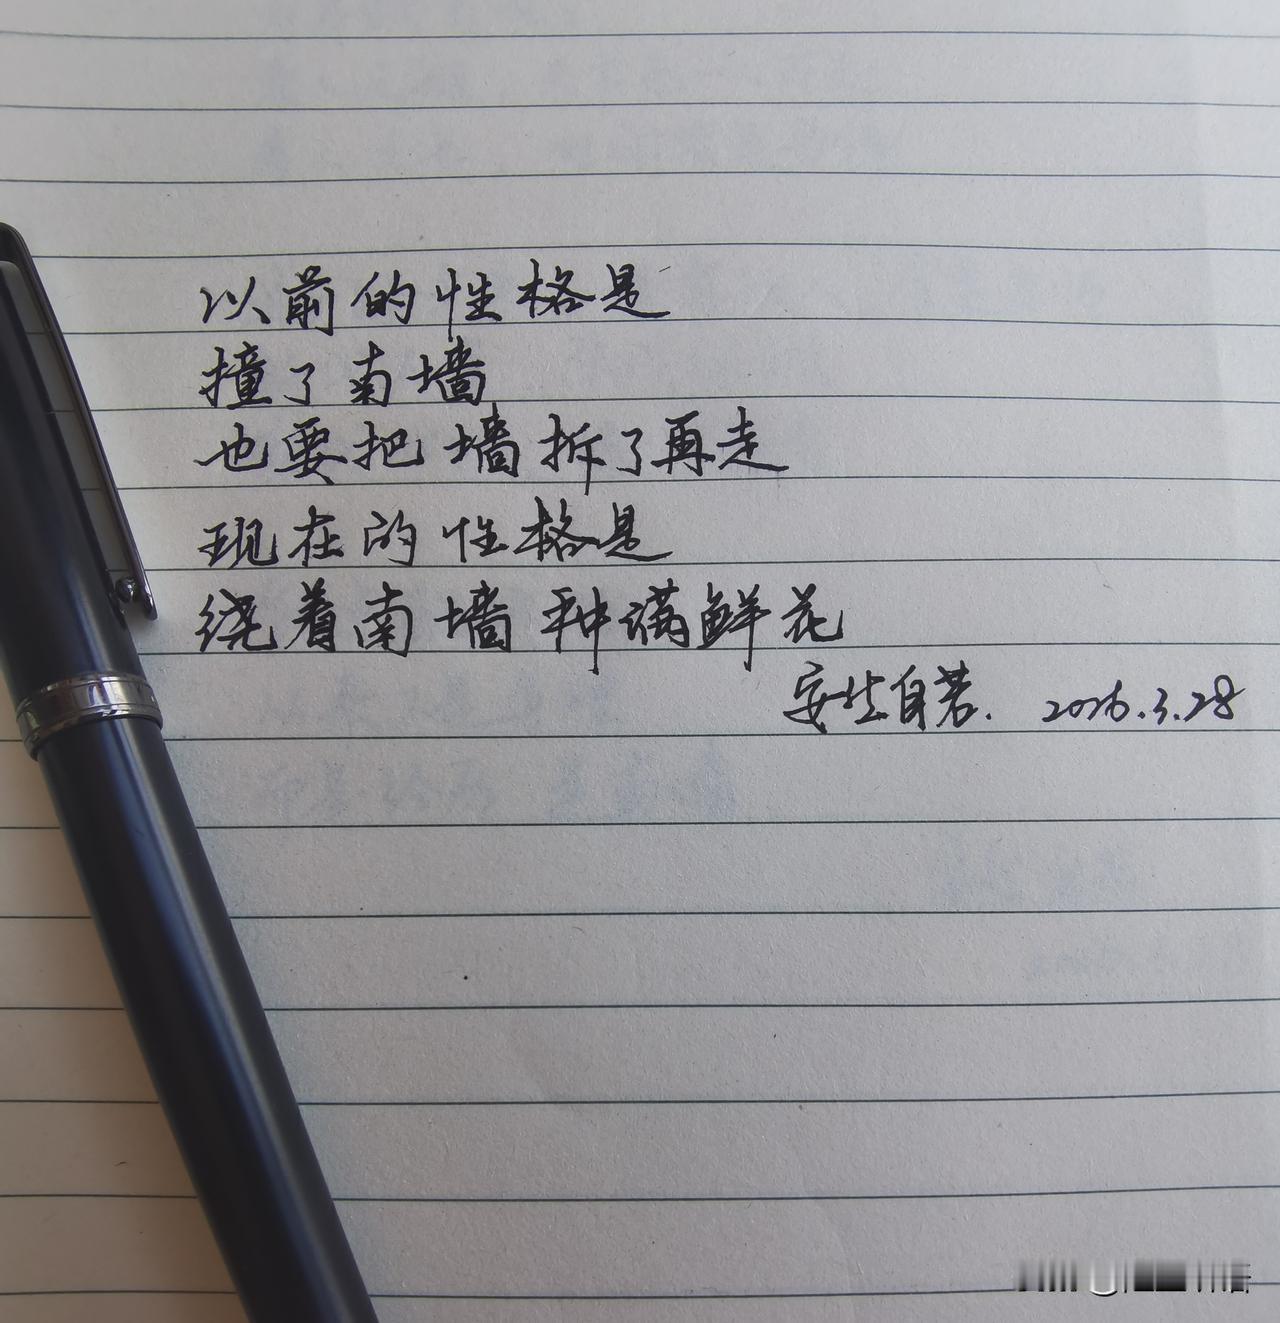 以前的性格是
撞了南墙
也要把墙拆了再走
现在的性格是
绕着南墙种满鲜花
安生自若. 2026.3.28